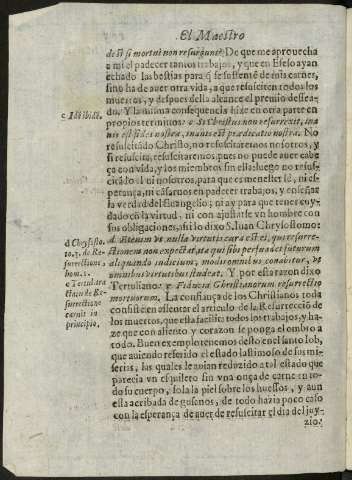 El Maestro
de si mortui non resurgunt? De que me aprouecha
a mi el padecer tantos trabajos, y que en Efeso ayan
echado las bestias para q̃ se sustenté de mis carnes,
sino ha de auer otra vida, a que resusciten todos los
muertos, y despues della alcance el premio dessea-
do. Y la misma consequẽcia hize en otra parte en
propios terminos: c Si Christus non resurrexit, ina
nis est fides nostra, inanis est prædicatio nostra. No
resuscitado Christo, no resuscitaremos nosotros, y
si resuscita, resuscitaremos, pues no puede auer cabe
ça con vida, y los miembros sin ella: luego no resus-
citãdo el ni nosotros, para que es menester fè, ni es-
perança, ni cãsarnos en padecer trabajos, y enseñar
la verdad del Euangelio; ni ay para que tener cuy-
dado en la virtud, ni con ajustarse vn hombre con
sus obligaciones, assi lo dixo S. Iuan Chrysostomo:
d Etenim vt nulla virtutis cura est ei, qui resurre-
ctionem non expectat, ita qui sibi persuadet futurum
aliquando indicium, modis omnibus conabitur, vt
omnibus virtutibus studeat. Y por esta razon dixo
Tertuliano: e Fiducia Christianorum resurrectio
mortuorum. La confiança de los Christianos toda
consiste en assentar el articulo de la Resurrecciõ de
los muertos, que esta facilita todos los trabajos, y ha-
ze que con aliento y corazon se ponga el ombro a
todo. Buen exemplo tenemos desto en el santo Iob,
que auiendo referido el estado lastimoso de sus mi-
serias, las quales le auian reduzido a tal estado que
parecia vn esqueleto sin vna onça de carne en to-
do su cuerpo, sola la piel sobre los huessos, y aun
esta acribada de gusanos, de todo hazia poco caso
con la esperança de auer de resuscitar el dia del juy-
zio.
c Idẽ ibidẽ.
d Chrysosto.
to. 3. de Re-
surrectione,
hom. 1.
e Tertul.
lib. de Re-
surrectione
carnis in
principio.